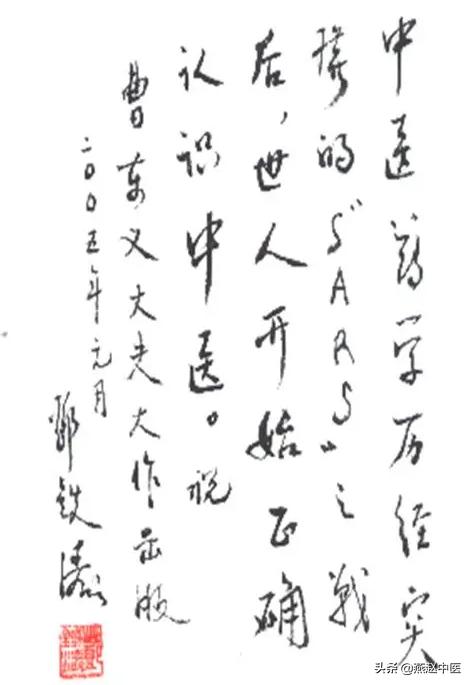 中医药学历经突
袭的“SARS”之战
后，世人开始正确
认识中医。祝
曹东义大夫大作出版
二00五年元月
邓铁涛
头条@燕赵中医